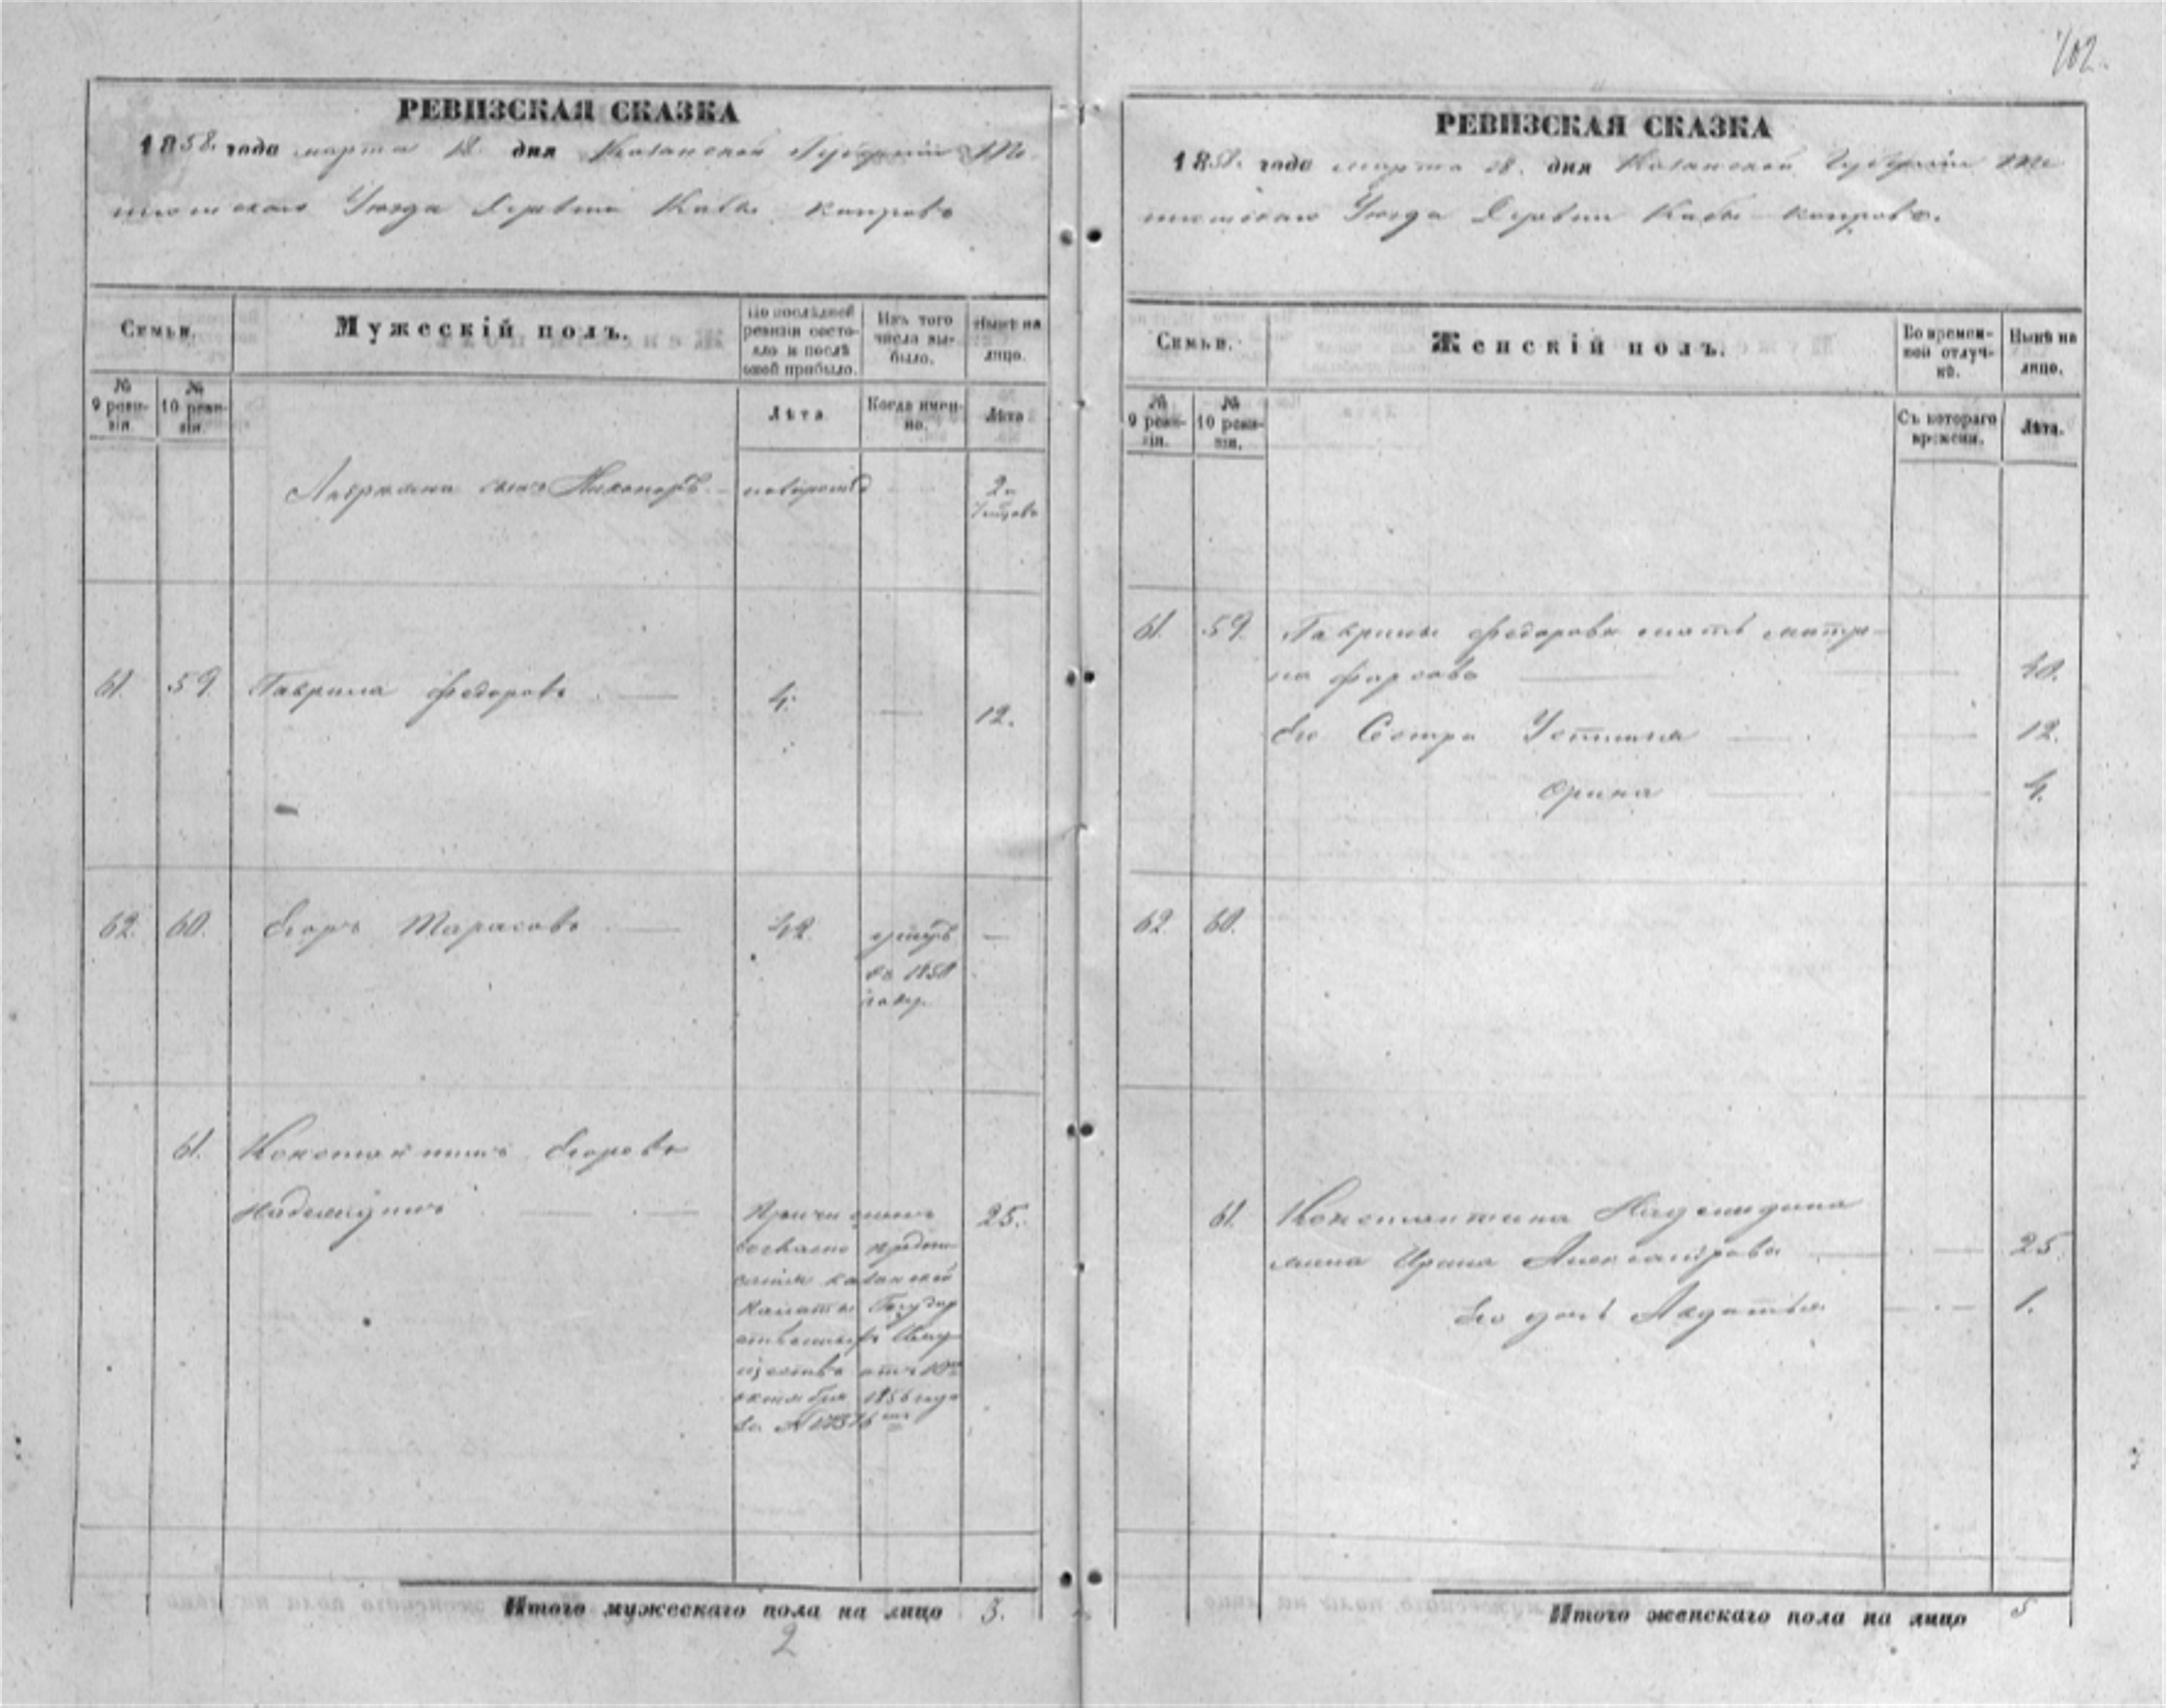 102.
РЕВИЗСКАЯ СКАЗКА
1858. года марта 18. дня Казанской Губернии Те-
тюшскаго Уезда Деревни Кабы Копрово
Семьи.
Мужескій полъ.
По послѣдней ревизіи состояло и послѣ оной прибыло.
Изъ того числа выбыло.
Нынѣ на лицо.
№ 9 ревизіи.
№ 10 ревизіи.
Лѣта
Когда именно.
Лѣта
сынъ Никаноръ
2
61. 59. Гаврила Федоровъ 4. 12.
62. 60. Егоръ Тарасовъ 42.
въ 1850
году
61. Константинъ Егоровъ
25.
согласно предпи-
санія казанской
Палаты Государ
ственныхъ Иму
ществъ отъ
октября 1856 года
за №
Итого мужескаго пола на лицо 3.
2
РЕВИЗСКАЯ СКАЗКА
1858. года марта 18. дня Казанской Губерніи Те
тюшскаго Уезда Деревни Кабы-Копрово.
Семьи.
Женскій полъ.
Во временной отлучкѣ.
Нынѣ на лицо.
№ 9 ревизіи.
№ 10 ревизіи.
Съ котораго времени.
Лѣта.
61. 59. Гаврилы Федорова мать матре-
на 40.
его Сестра Устинья 12.
Орина 4.
62 60.
61. Константина
жена Ирина Александрова 25.
Его дочь Авдотья 1.
Итого женскаго пола на лицо 5